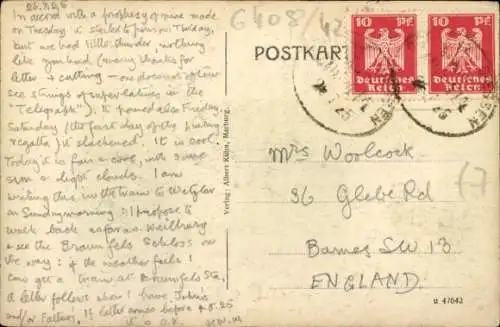 26.7.25
In accord with a prophesy of mine made
on Tuesday it started to pour on Thursday,
but we had little thunder, nothing
like you had (many thanks for
letter & cutting — one does not often
see strings of superlatives in the
"Telegraph"). It poured also Friday,
Saturday (the first day of the
regatta) it slackened. It is cool.
Today it is fair & cool, with some
sun & light clouds. I am
writing this in the train to Wetzlar
on Sunday morning: I propose to
walk back as far as Weilburg
& see the Braunfels Schloss on
the way: & the weather fails I
can get a train at Braunfels Sta.
A letter follows when I have John's
and/or Father's. If letter comes before 8.25
it is O.K. H.W.W.
G408/42
POSTKART
10 Pf. 10 Pf.
Deutsches Reich Deutsches Reich
Verlag: Albert Kühn, Marburg.
Mrs Woolcock
36 Glebe Rd
Barnes SW 13
ENGLAND.
(7
u 47042